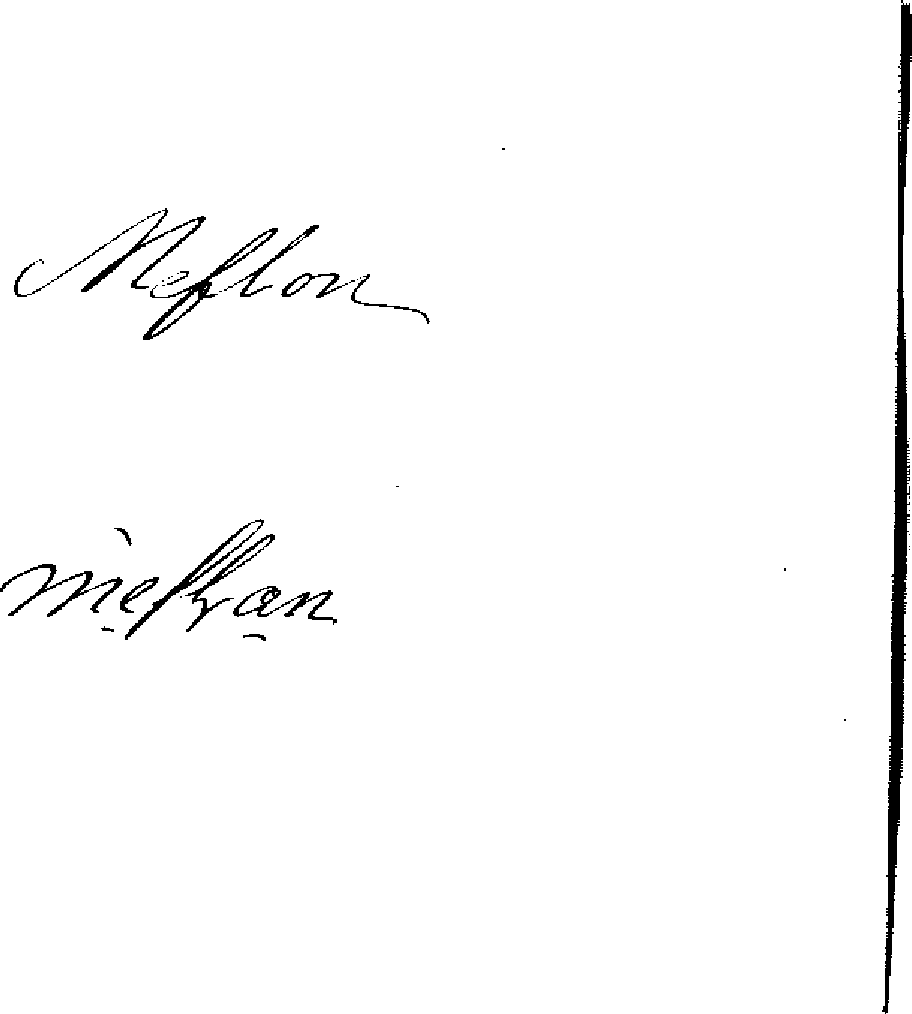 Meflon
mefhan